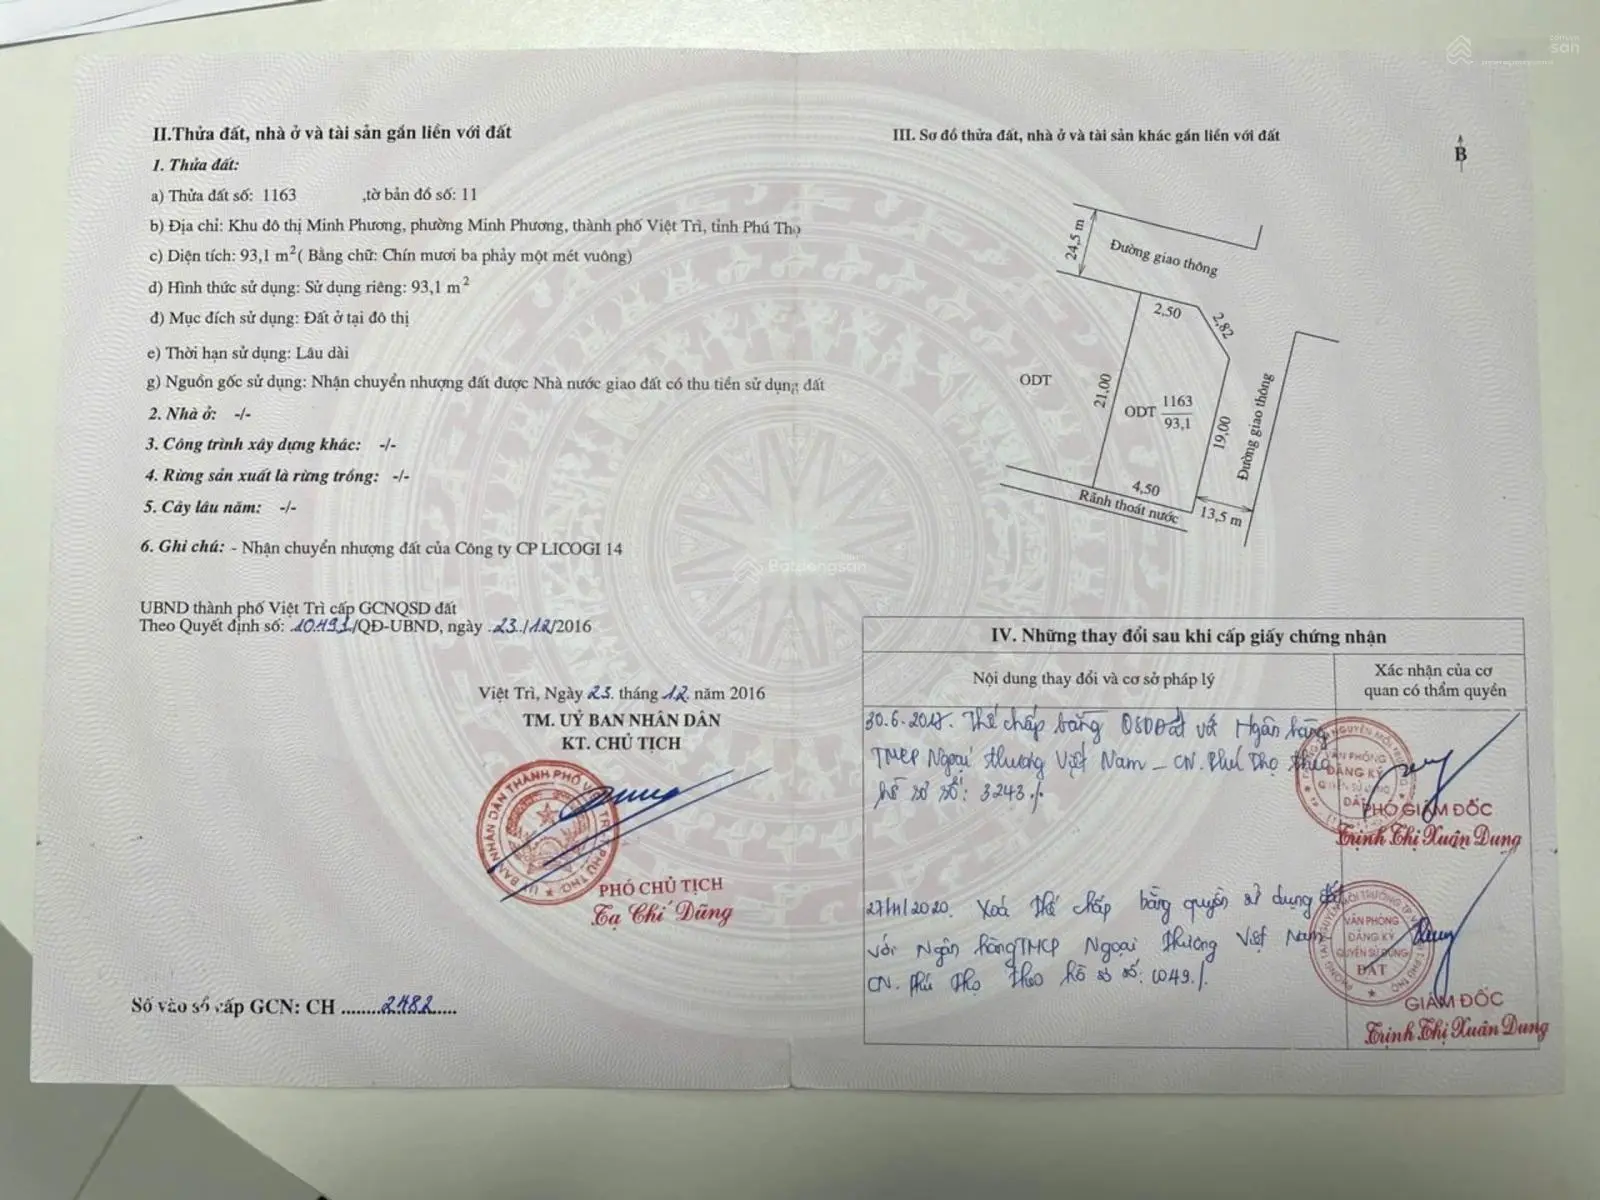 II.Thửa đất, nhà ở và tài sản gắn liền với đất
1. Thửa đất:
a) Thửa đất số: 1163 ,tờ bản đồ số: 11
b) Địa chỉ: Khu đô thị Minh Phương, phường Minh Phương, thành phố Việt Trì, tỉnh Phú Thọ
c) Diện tích: 93,1 m² ( Bằng chữ: Chín mươi ba phảy một mét vuông)
d) Hình thức sử dụng: Sử dụng riêng: 93,1 m²
đ) Mục đích sử dụng: Đất ở tại đô thị
e) Thời hạn sử dụng: Lâu dài
g) Nguồn gốc sử dụng: Nhận chuyển nhượng đất được Nhà nước giao đất có thu tiền sử dụng đất
2. Nhà ở: -/-
3. Công trình xây dựng khác: -/-
4. Rừng sản xuất là rừng trồng: -/-
5. Cây lâu năm: -/-
6. Ghi chú: - Nhận chuyển nhượng đất của Công ty CP LICOGI 14
UBND thành phố Việt Trì cấp GCNQSD đất
Theo Quyết định số: 10491/QĐ-UBND, ngày 23/12/2016
Việt Trì, Ngày 23. tháng 12. năm 2016
TM. UỶ BAN NHÂN DÂN
KT. CHỦ TỊCH
PHÓ CHỦ TỊCH
Tạ Chí Dũng
Số vào sổ cấp GCN: CH ........2482....
III. Sơ đồ thửa đất, nhà ở và tài sản khác gắn liền với đất
B
24,5 m
Đường giao thông
2,50
2,82
ODT
21,00
ODT 1163
93,1
19,00
Đường giao thông
4,50
Rãnh thoát nước
13,5 m
Batdongsan
IV. Những thay đổi sau khi cấp giấy chứng nhận
Nội dung thay đổi và cơ sở pháp lý
Xác nhận của cơ
quan có thẩm quyền
30.6.2017. Thế chấp bằng QSDĐất với Ngân hàng
TMCP Ngoại thương Việt Nam - CN. Phú Thọ theo
hồ sơ số: 3243./.
VĂN PHÒNG
ĐĂNG KÝ
PHÓ GIÁM ĐỐC
Trịnh Thị Xuân Dung
27/11/2020. Xoá thế chấp bằng quyền sử dụng đất
với Ngân hàng TMCP Ngoại thương Việt Nam -
CN. Phú Thọ theo hồ sơ số: 1049./.
VĂN PHÒNG
ĐĂNG KÝ
QUYỀN SỬ DỤNG
ĐẤT
GIÁM ĐỐC
Trịnh Thị Xuân Dung